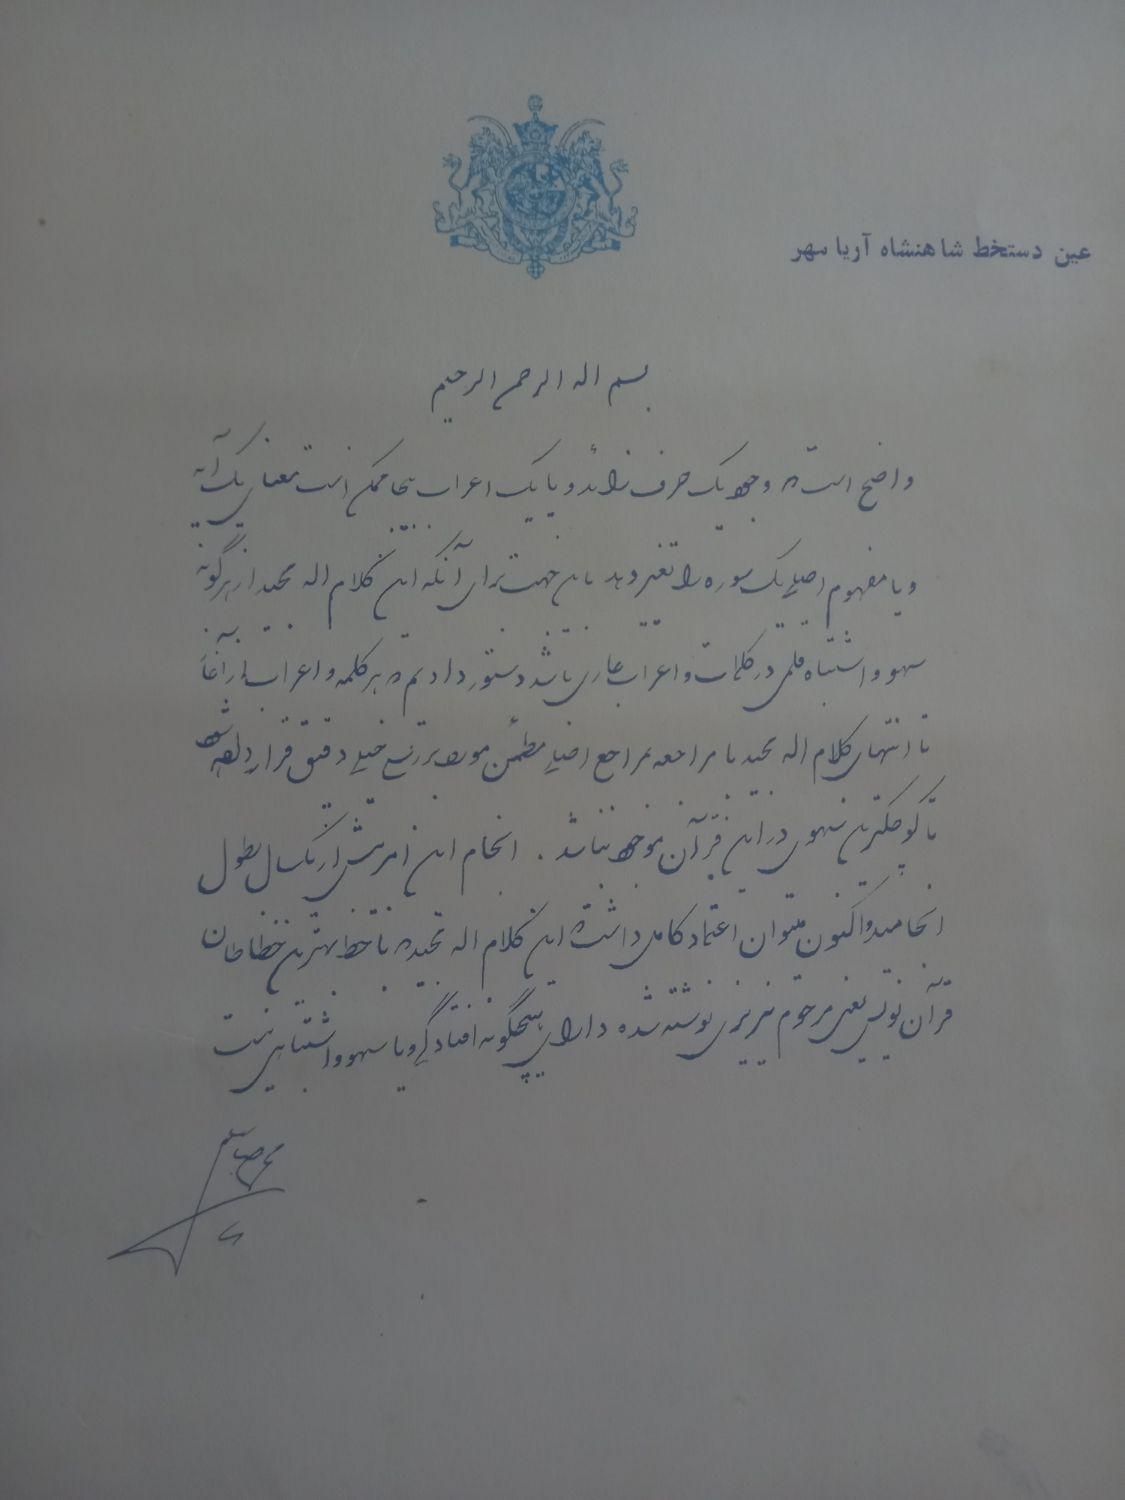 عین دستخط شاهنشاه آریا مهر
بسم اله الرحمن الرحیم
واضح است که وجود یک حرف زائد و یا یک اعراب بیجا ممکن است معنای یک آیه
و یا مفهوم اصلی یک سوره را تغییر دهد باین جهت برای آنکه این کلام اله مجید از هرگونه
سهو و اشتباه قلمی در کلمات و اعراب عاری باشد دستور دادیم که هر کلمه و اعراب از آغاز
تا انتهای کلام اله مجید با مراجعه بمراجع اصلی مطمئن مورد بررسی خیلی دقیق قرار داده شود
تا کوچکترین سهوی در این قرآن موجود نباشد . انجام این امر بیش از یکسال بطول
انجامید و اکنون میتوان اعتماد کامل داشت که این کلام اله مجید که با خط بهترین خطاطان
قرآن نویس یعنی مرحوم نیریزی نوشته شده دارای هیچگونه افتادگی و یا سهو و اشتباهی نیست